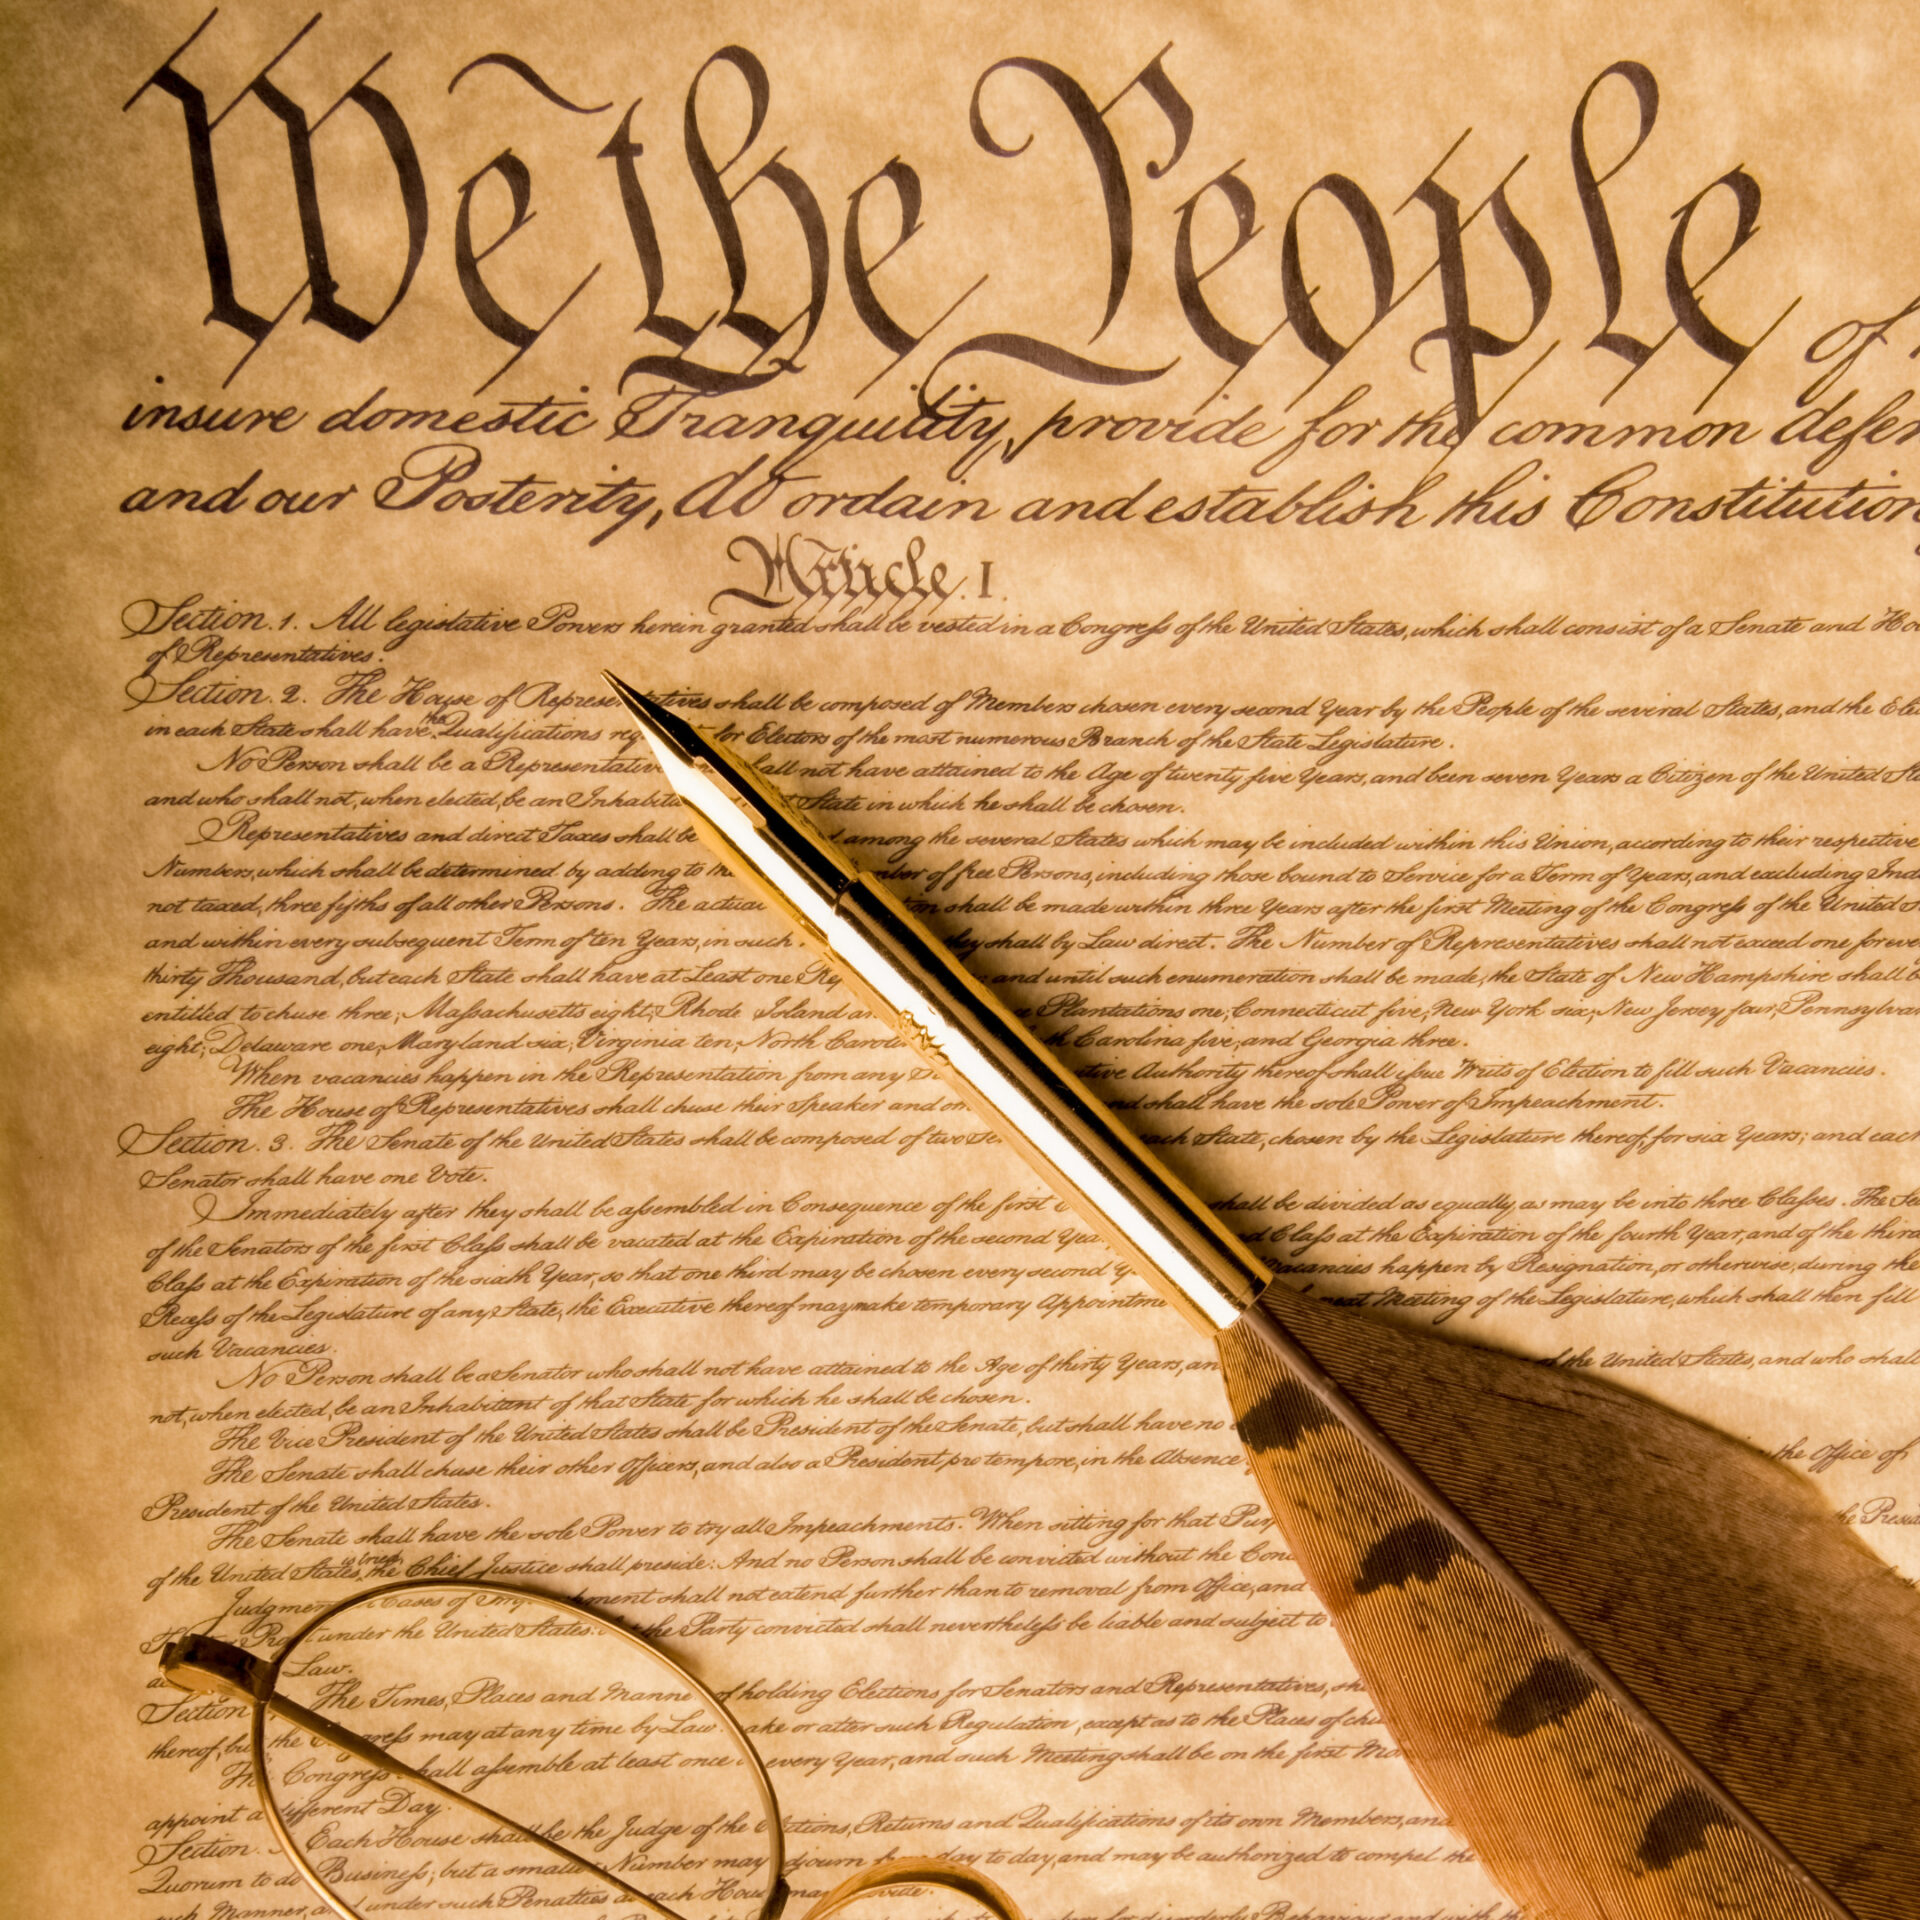 We the People of
insure domestic Tranquility, provide for the common defen
and our Posterity, do ordain and establish this Constitution
Article. I.
Section. 1. All legislative Powers herein granted shall be vested in a Congress of the United States, which shall consist of a Senate and Ho
of Representatives.
Section. 2. The House of Represen tatives shall be composed of Members chosen every second Year by the People of the several States, and the Ele
in each State shall have the Qualifications req for Electors of the most numerous Branch of the State Legislature.
No Person shall be a Representative hall not have attained to the Age of twenty five Years, and been seven Years a Citizen of the United Sta
and who shall not, when elected, be an Inhabita t State in which he shall be chosen.
Representatives and direct Taxes shall be d among the several States which may be included within this Union, according to their respective
Numbers, which shall be determined by adding to the mber of free Persons, including those bound to Service for a Term of Years, and excluding Ind
not taxed, three fifths of all other Persons. The actual tion shall be made within three Years after the first Meeting of the Congress of the United S
and within every subsequent Term of ten Years, in such they shall by Law direct. The Number of Representatives shall not exceed one for eve
thirty Thousand, but each State shall have at Least one Rep and until such enumeration shall be made, the State of New Hampshire shall b
entitled to chuse three, Massachusetts eight, Rhode Island an ce Plantations one, Connecticut five, New York six, New Jersey four, Pennsylva
eight, Delaware one, Maryland six, Virginia ten, North Caroli h Carolina five, and Georgia three.
When vacancies happen in the Representation from any St utive Authority thereof shall issue Writs of Election to fill such Vacancies.
The House of Representatives shall chuse their Speaker and oth nd shall have the sole Power of Impeachment.
Section. 3. The Senate of the United States shall be composed of two Se each State, chosen by the Legislature thereof, for six Years; and each
Senator shall have one Vote.
Immediately after they shall be assembled in Consequence of the first E shall be divided as equally as may be into three Classes. The Se
of the Senators of the first Class shall be vacated at the Expiration of the second Yea d Class at the Expiration of the fourth Year, and of the third
Class at the Expiration of the sixth Year, so that one third may be chosen every second Y Vacancies happen by Resignation, or otherwise, during the
Recess of the Legislature of any State, the Executive thereof may make temporary Appointme next Meeting of the Legislature, which shall then fill
such Vacancies.
No Person shall be a Senator who shall not have attained to the Age of thirty Years, an of the United States, and who shall
not, when elected, be an Inhabitant of that State for which he shall be chosen.
The Vice President of the United States shall be President of the Senate, but shall have no
The Senate shall chuse their other Officers, and also a President pro tempore, in the Absence the Office of
President of the United States.
The Senate shall have the sole Power to try all Impeachments. When sitting for that Pur the Presid
of the United States is tried, the Chief Justice shall preside: And no Person shall be convicted without the Conc
Judgmen in Cases of Imp hment shall not extend further than to removal from Office, and
under the United States: the Party convicted shall nevertheless be liable and subject to
Law.
Section The Times, Places and Manne of holding Elections for Senators and Representatives, sh
thereof, bu the Congress may at any time by Law ake or alter such Regulation, except as to the Places of chu
The Congress shall assemble at least once in every Year, and such Meeting shall be on the first Mon
appoint a different Day.
Section. Each House shall be the Judge of the Elections, Returns and Qualifications of its own Members, and
Quorum to do Business; but a smaller Number may adjourn from day to day, and may be authorized to compel the
such Manner, and under such Penalties as each House may provide.
for disorderly Behaviour, and with the